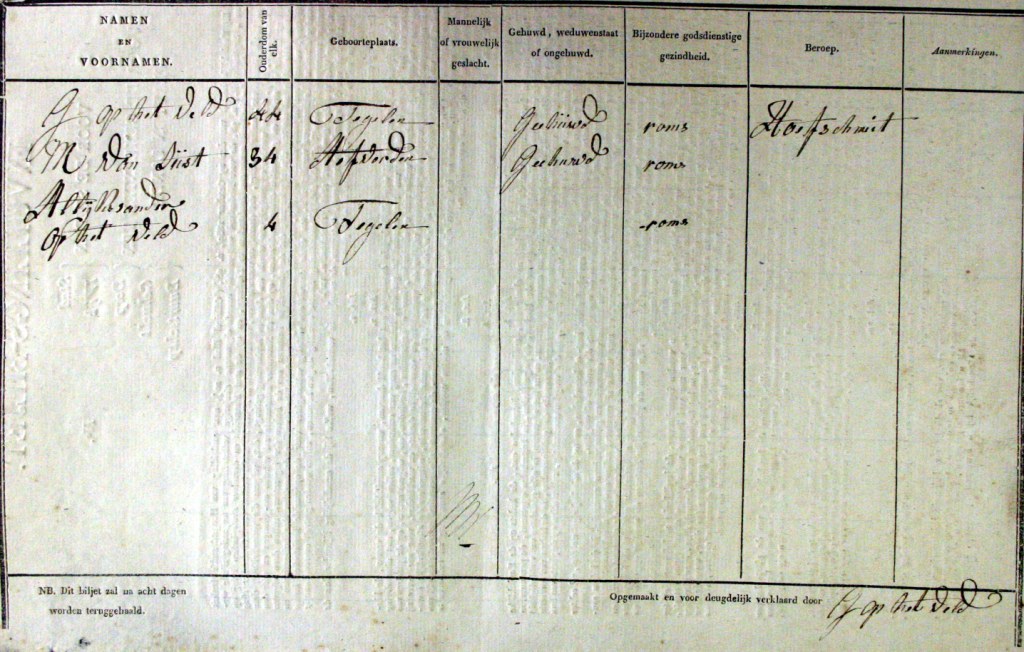 NAMEN
EN
VOORNAMEN.
Ouderdom van elk.
Geboorteplaats.
Mannelijk
of vrouwelijk
geslacht.
Gehuwd, weduwenstaat
of ongehuwd.
Bijzondere godsdienstige
gezindheid.
Beroep.
Aanmerkingen.
G op het Veld 44 Tegelen Gehuwd roms Hoefschmit
M van Lijst 34 Gehuwd roms
op het Veld 4 Tegelen roms
NB. Dit biljet zal na acht dagen
worden teruggehaald.
Opgemaakt en voor deugdelijk verklaard door G op het Veld